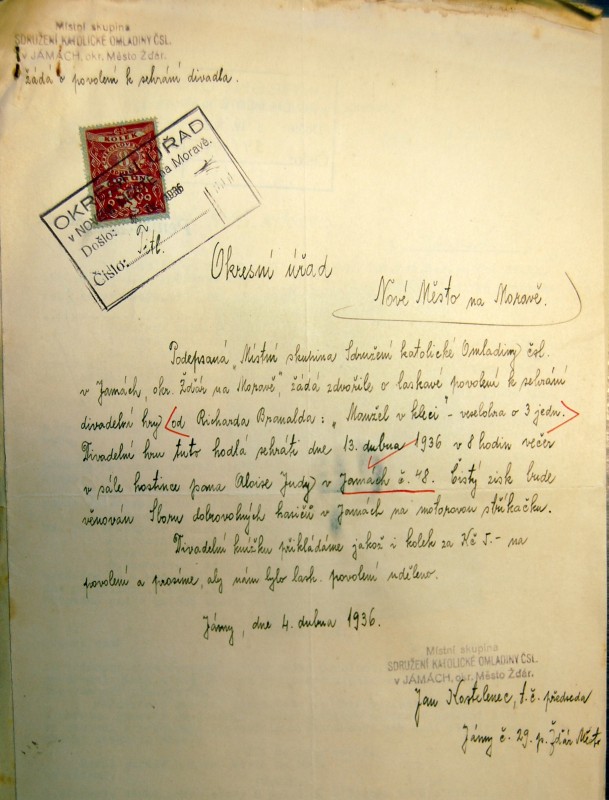 Místní skupina
SDRUŽENÍ KATOLICKÉ OMLADINY ČSL.
v JÁMÁCH, okr. Město Žďár.
žádá o povolení k sehrání divadla.
KOLEK
OKRESNÍ ÚŘAD
v NOVÉM na Moravě.
Došlo: 1936
Číslo:
Titl.
Okresní úřad
Nové Město na Moravě.
Podepsaná „Místní skupina Sdružení katolické Omladiny čsl.
v Jamách, okr. Žďár na Moravě" žádá zdvořile o laskavé povolení k sehrání
divadelní hry od Richarda Branalda: „Manžel v kleci" - veselohra o 3 jedn.
Divadelní hru tuto hodlá sehráti dne 13. dubna 1936 v 8 hodin večer
v sále hostince pana Aloise Judy v Jamách č. 48. Čistý zisk bude
věnován Sboru dobrovolných hasičů v Jamách na motorovou stříkačku.
Divadelní knížku přikládáme jakož i kolek za Kč 5.- na
povolení a prosíme, aby nám bylo lask. povolení uděleno.
Jámy, dne 4. dubna 1936.
Místní skupina
SDRUŽENÍ KATOLICKÉ OMLADINY ČSL.
v JÁMÁCH, okr. Město Žďár.
Jan Kostelenec, t. č. předseda
Jámy č. 29. p. Žďár Město